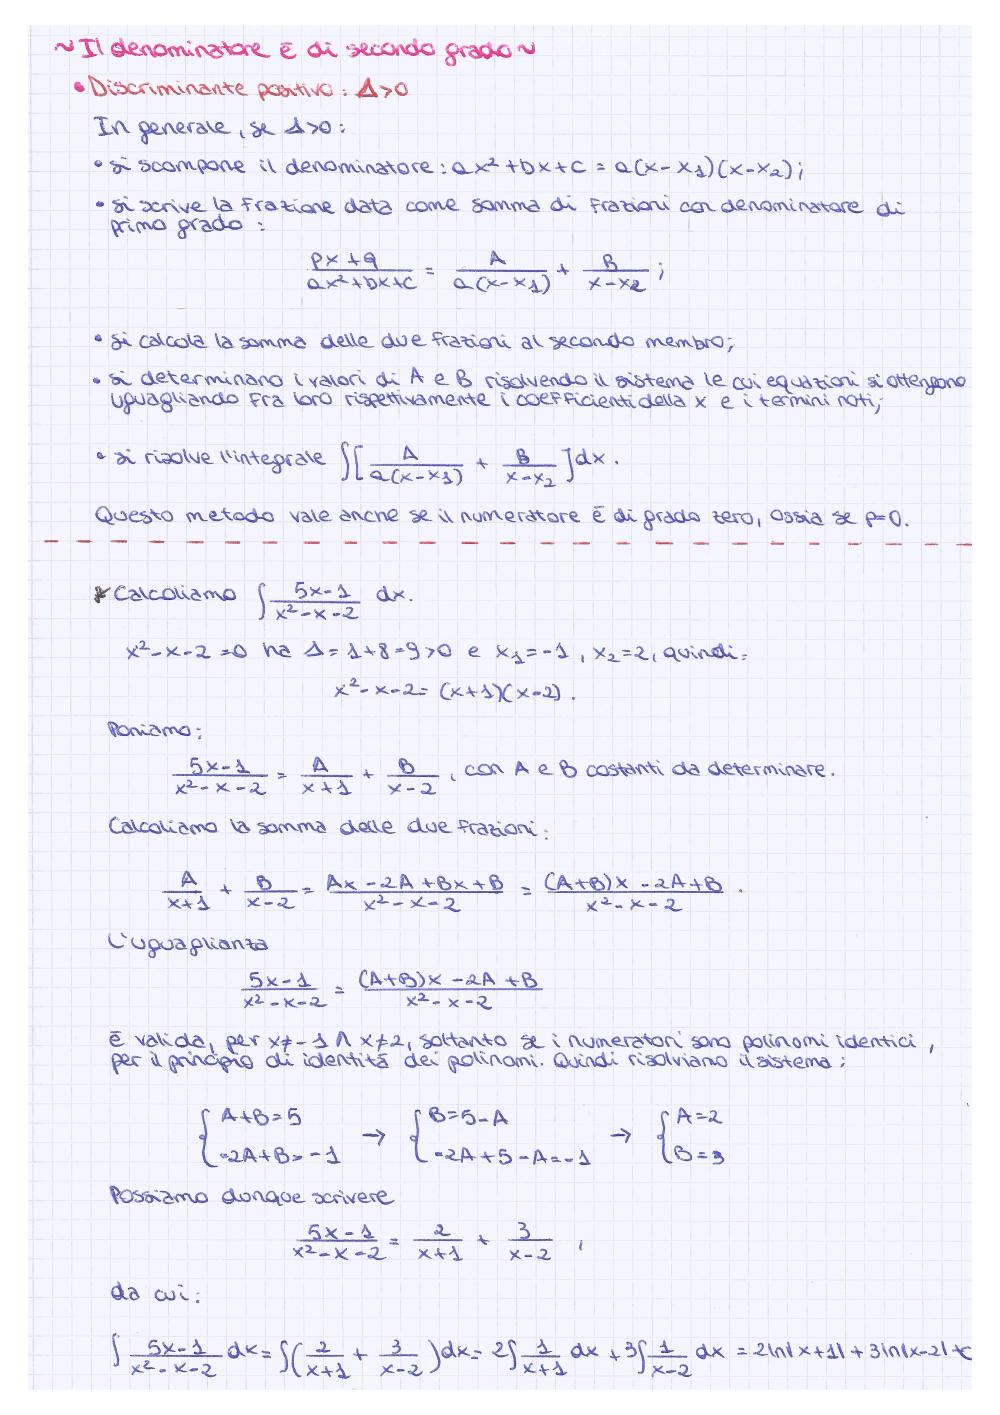 ~ Il denominatore è di secondo grado ~
• Discriminante positivo: Δ>0
In generale, se Δ>0:
• si scompone il denominatore: ax²+bx+c = a(x-x₁)(x-x₂);
• si scrive la frazione data come somma di frazioni con denominatore di
primo grado:
(px+q)/(ax²+bx+c) = A/(a(x-x₁)) + B/(x-x₂);
• si calcola la somma delle due frazioni al secondo membro;
• si determinano i valori di A e B risolvendo il sistema le cui equazioni si ottengono
uguagliando fra loro rispettivamente i coefficienti della x e i termini noti;
• si risolve l'integrale ∫[A/(a(x-x₁)) + B/(x-x₂)]dx.
Questo metodo vale anche se il numeratore è di grado zero, ossia se p=0.
* Calcoliamo ∫(5x-1)/(x²-x-2) dx.
x²-x-2=0 ha Δ=1+8=9>0 e x₁=-1, x₂=2, quindi:
x²-x-2=(x+1)(x-2).
Poniamo:
(5x-1)/(x²-x-2) = A/(x+1) + B/(x-2), con A e B costanti da determinare.
Calcoliamo la somma delle due frazioni:
A/(x+1) + B/(x-2) = (Ax-2A+Bx+B)/(x²-x-2) = ((A+B)x-2A+B)/(x²-x-2).
L'uguaglianza
(5x-1)/(x²-x-2) = ((A+B)x-2A+B)/(x²-x-2)
è valida, per x≠-1 ∧ x≠2, soltanto se i numeratori sono polinomi identici,
per il principio di identità dei polinomi. Quindi risolviamo il sistema:
{A+B=5 → {B=5-A → {A=2
{-2A+B=-1 {-2A+5-A=-1 {B=3
Possiamo dunque scrivere
(5x-1)/(x²-x-2) = 2/(x+1) + 3/(x-2),
da cui:
∫(5x-1)/(x²-x-2) dx = ∫(2/(x+1) + 3/(x-2))dx = 2∫1/(x+1) dx + 3∫1/(x-2) dx = 2ln|x+1| + 3ln|x-2|+c